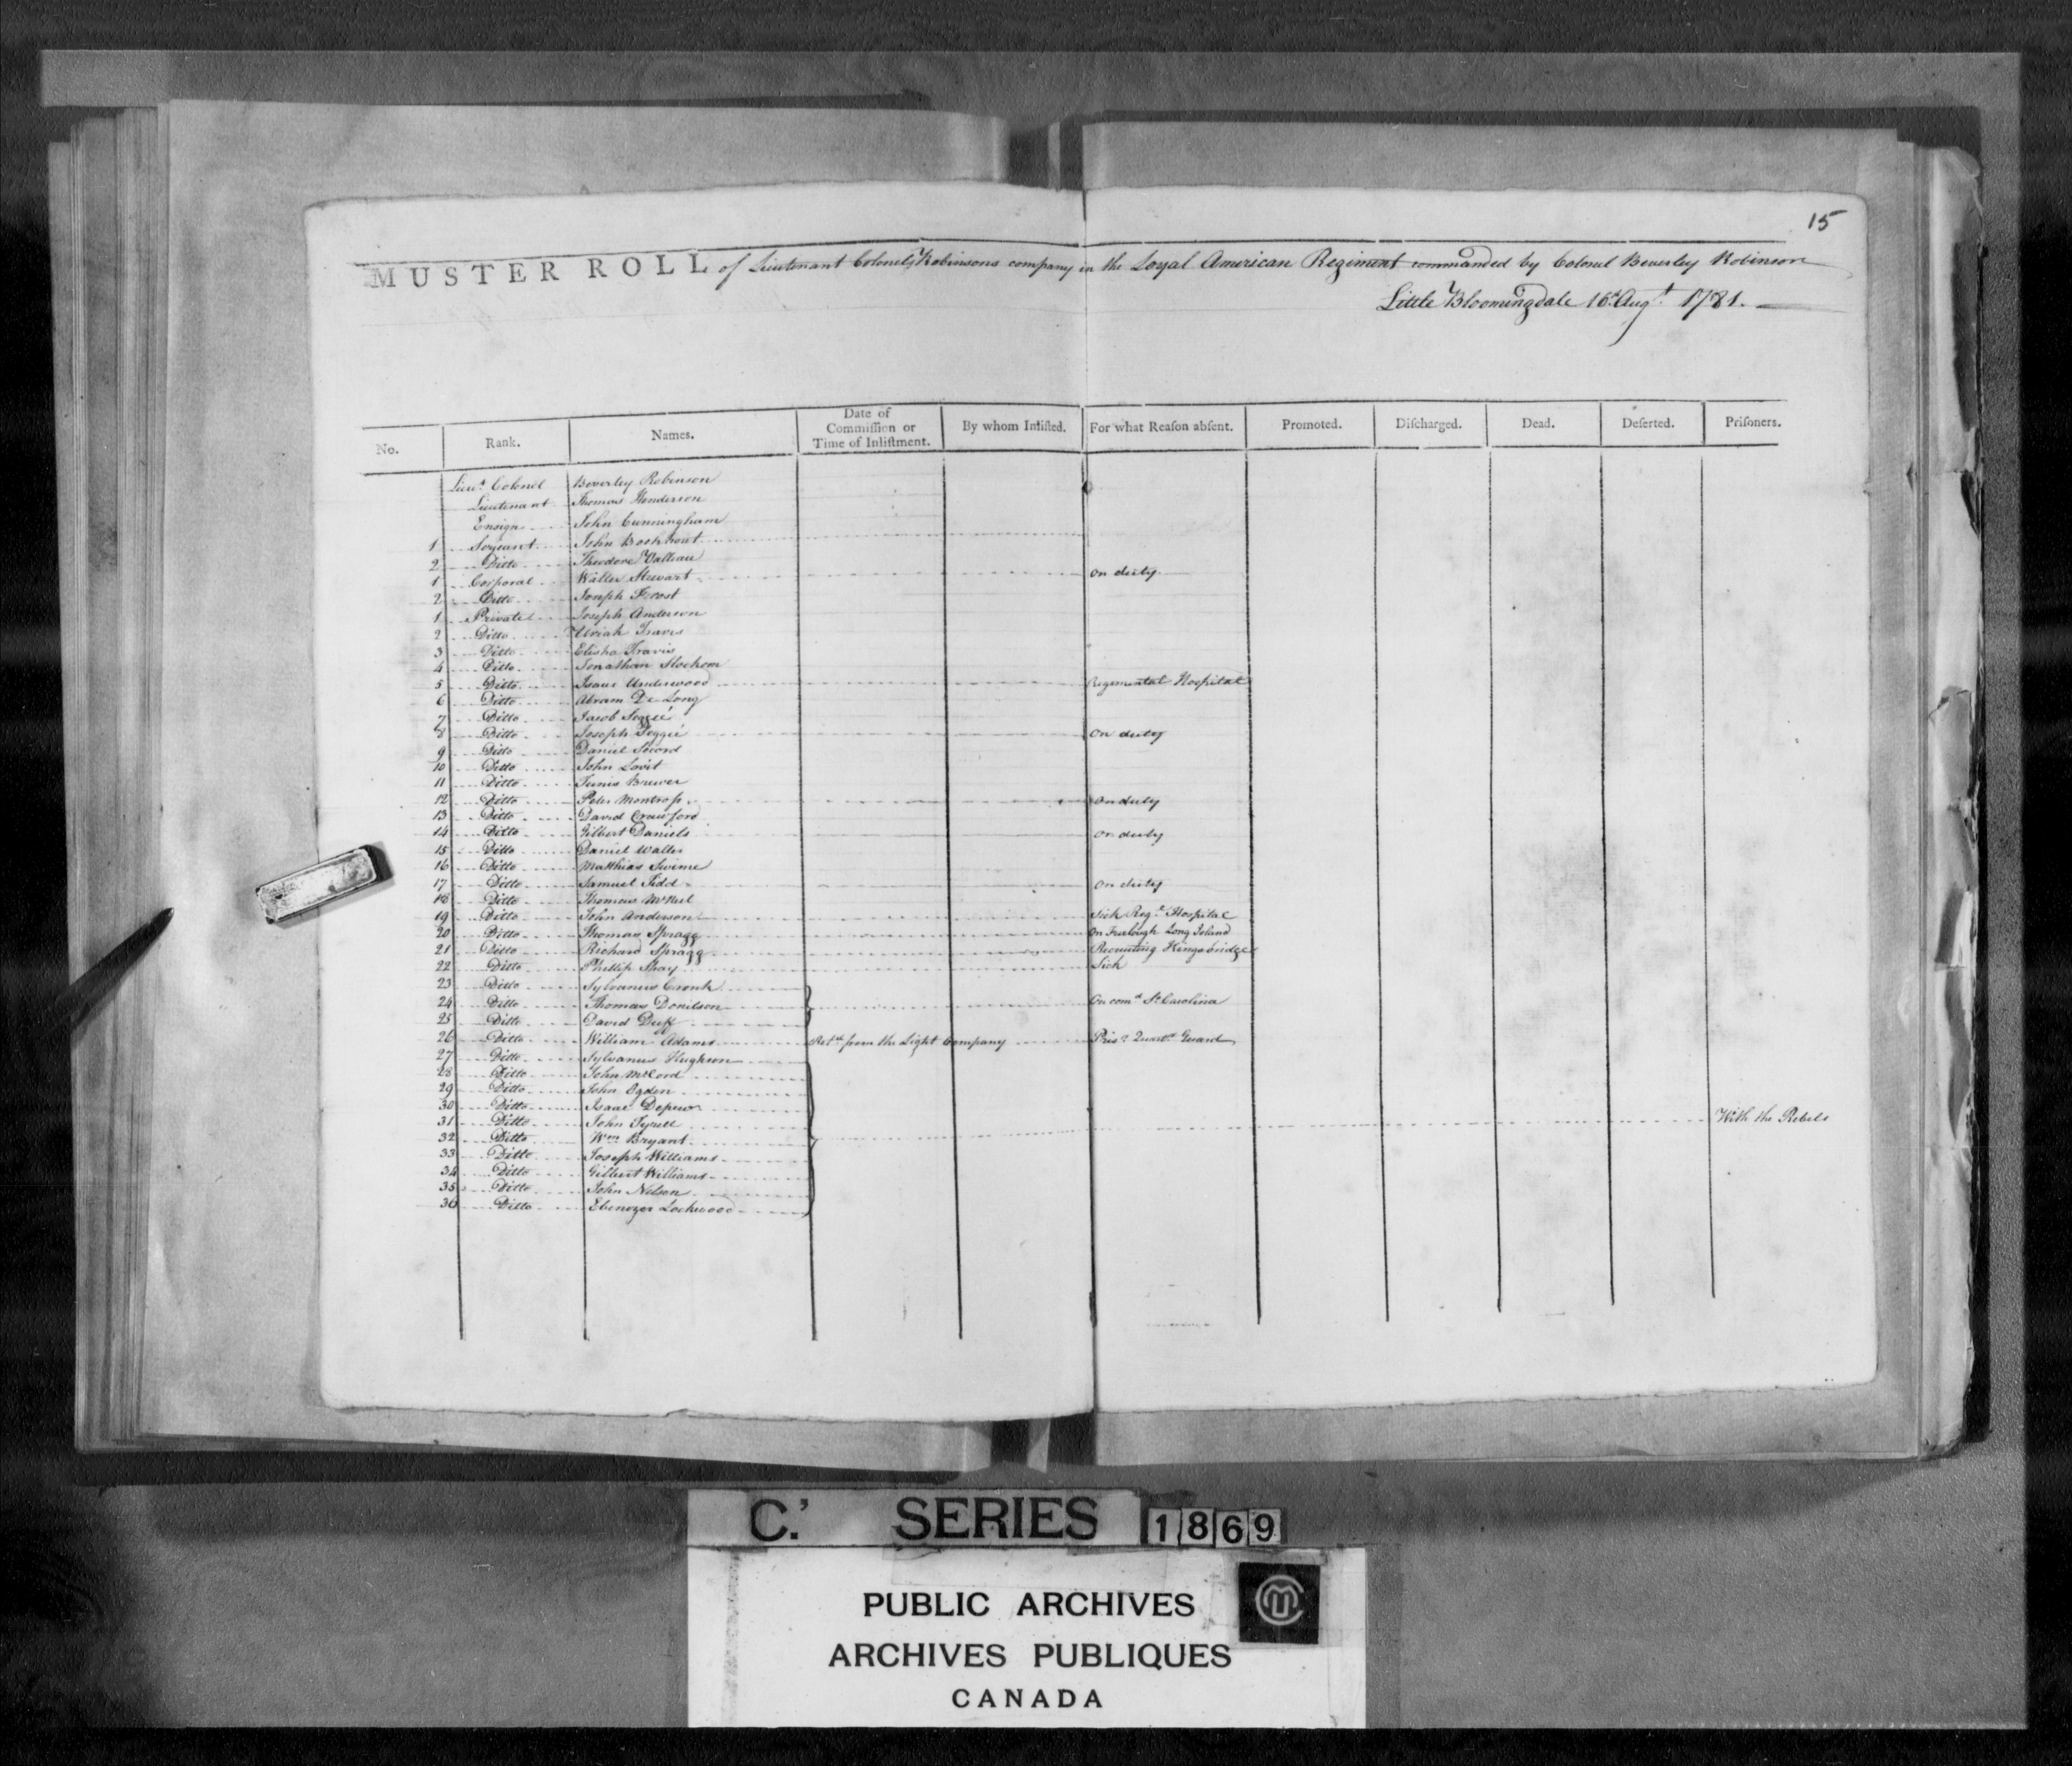 15
MUSTER ROLL of Lieutenant Colonel Robinsons company in the Loyal American Regiment commanded by Colonel Beverley Robinson
Little Bloomingdale 16 Augt 1781.
No. Rank. Names. Date of Commiſſion or Time of Inliſtment. By whom Inliſted. For what Reaſon abſent. Promoted. Diſcharged. Dead. Deſerted. Priſoners.
Lieut Colonel Beverley Robinson
Lieutenant Thomas Henderson
Ensign John Cunningham
1 Serjeant John Bookhout
2 Ditto Theodore Valleau
1 Corporal Walter Stewart On duty
2 Ditto Joseph Frost
1 Private Joseph Anderson
2 Ditto Uriah Travis
3 Ditto Elisha Travis
4 Ditto Jonathan Slockom
5 Ditto Isaac Underwood Regimental Hospital
6 Ditto Abram De Long
7 Ditto Jacob
8 Ditto Joseph On duty
9 Ditto Daniel Secord
10 Ditto John Lovit
11 Ditto Tunis Brewer
12 Ditto Peter Montross On duty
13 Ditto David Crawford
14 Ditto Gilbert Daniels On duty
15 Ditto Daniel Walter
16 Ditto Matthias
17 Ditto Samuel Tidd On duty
18 Ditto Thomas McNeil
19 Ditto John Anderson Sick Regl Hospital
20 Ditto Thomas Spragg On Furlough Long Island
21 Ditto Richard Spragg Recruiting Kingsbridge
22 Ditto Phillip Shay Sick
23 Ditto Sylvanus Cronk
24 Ditto Thomas Donilson On comd So Carolina
25 Ditto David Duff
26 Ditto William Adams Retd from the Light Company Prisr Quartr Guard
27 Ditto Sylvanus Hughson
28 Ditto John McCord
29 Ditto John Ogden
30 Ditto Isaac Depew
31 Ditto John Tyrell With the Rebels
32 Ditto Wm Bryant
33 Ditto Joseph Williams
34 Ditto Gilbert Williams
35 Ditto John Nelson
36 Ditto Ebenezer Lockwood
C.' SERIES 1869
PUBLIC ARCHIVES
ARCHIVES PUBLIQUES
CANADA